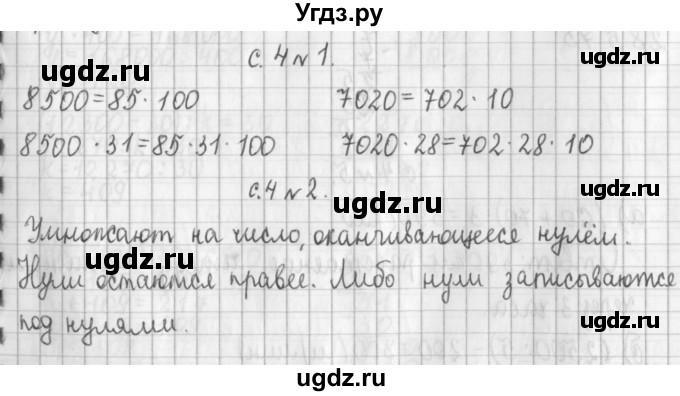 Угдз.ру
с. 4 № 1.
ugdz.ru ugdz.ru
8500=85·100 7020=702·10
8500·31=85·31·100 7020·28=702·28·10
с.4 № 2.
ugdz.ru
Умножают на число, оканчивающееся нулём.
ugdz.ru
Нули остаются правее. Либо нули записываются
ugdz.ru
под нулями.
ugdz.ru